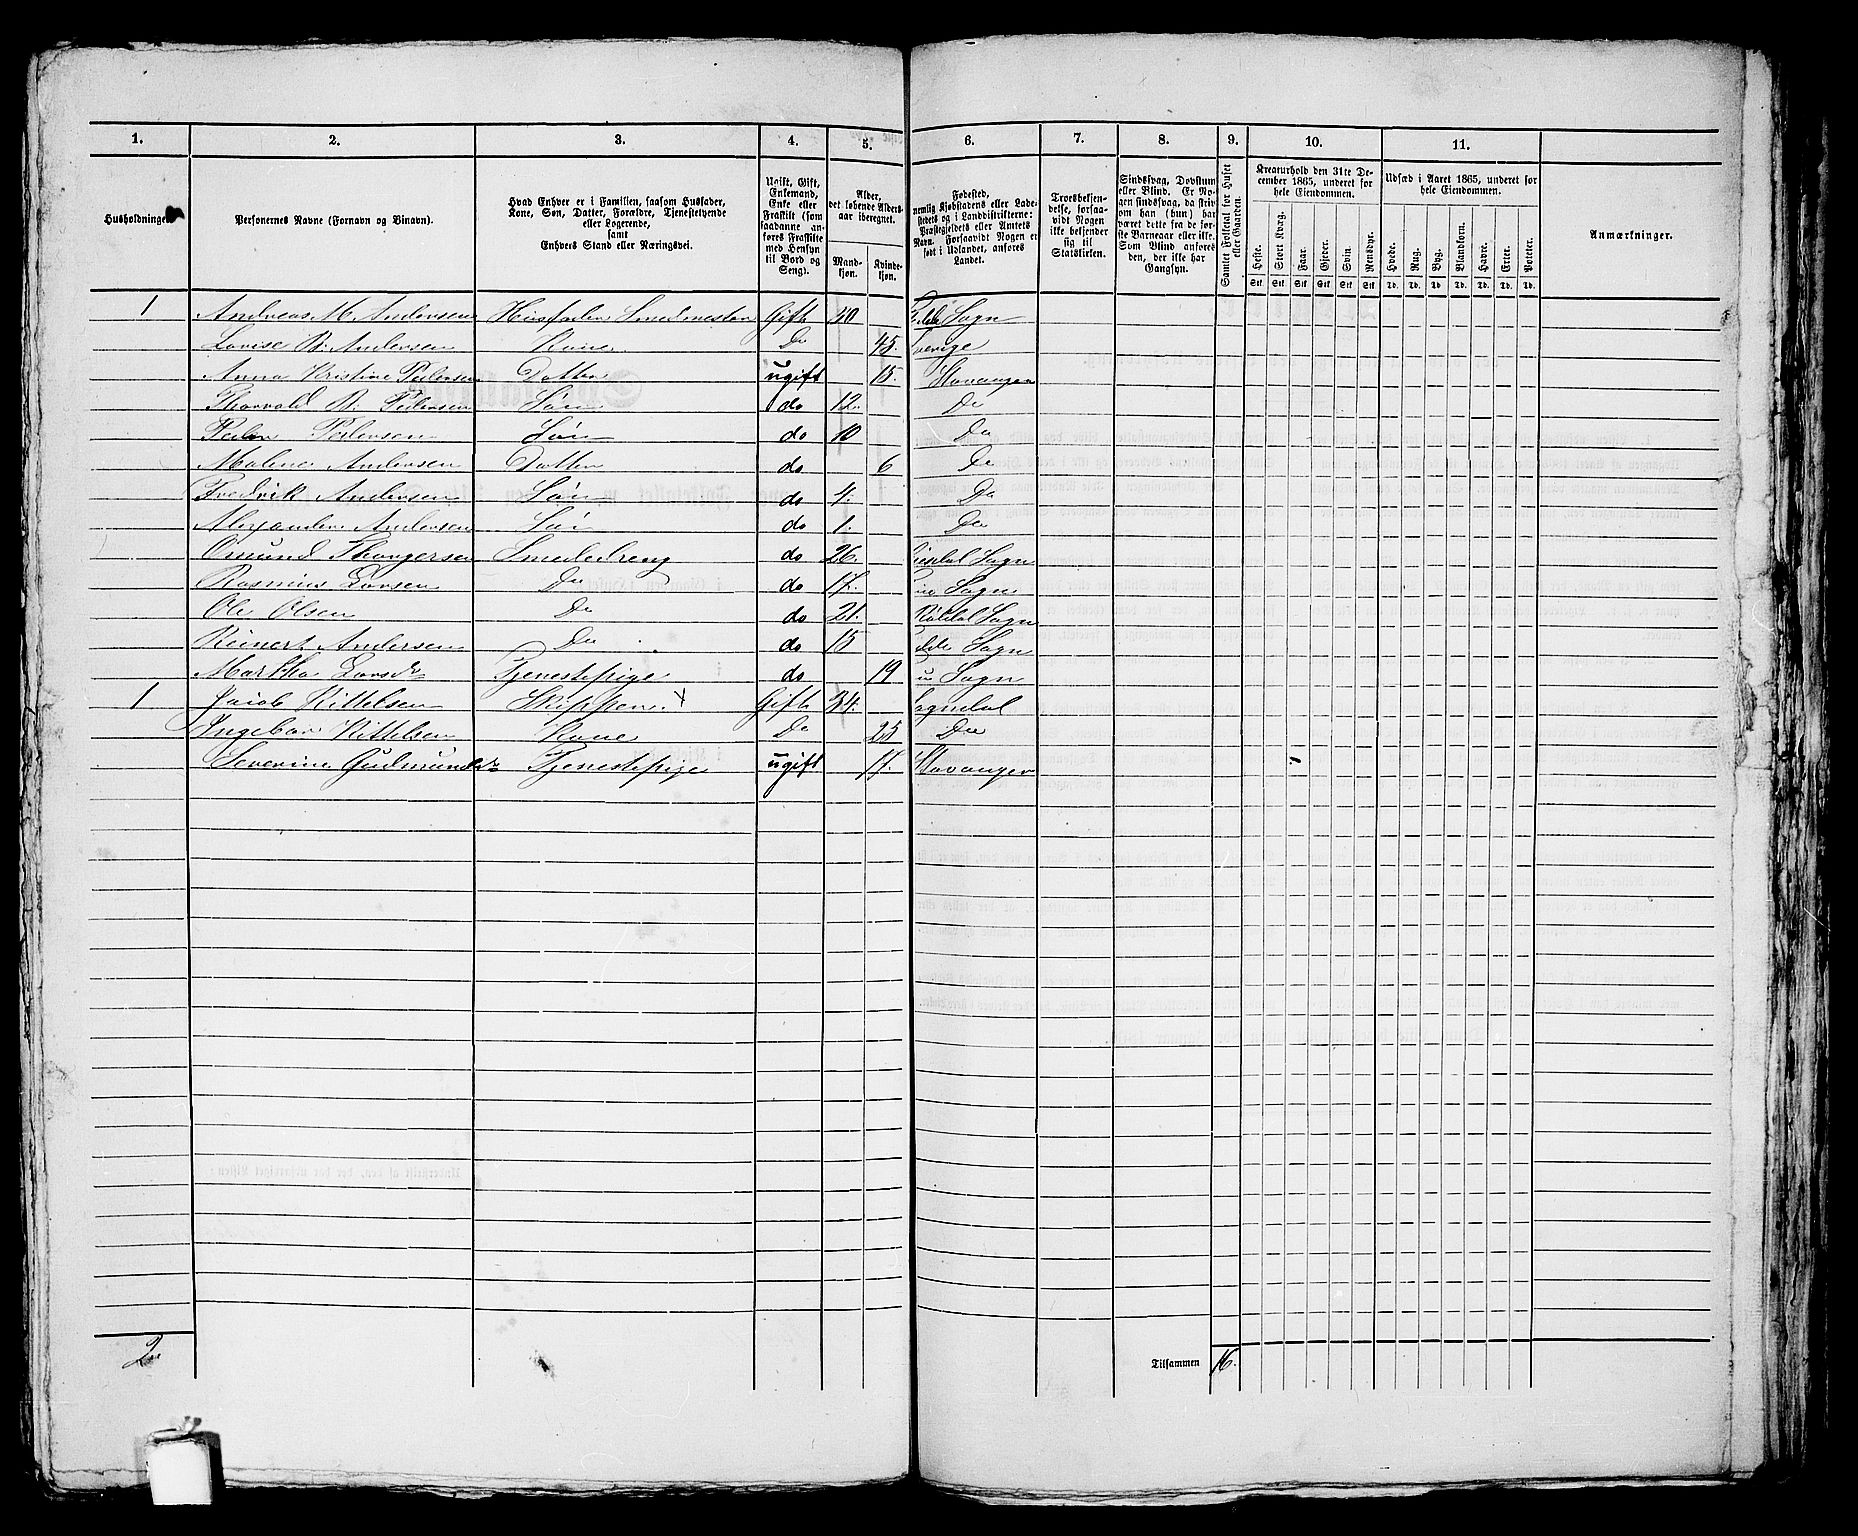 1. 2. 3. 4. 5. 6. 7. 8. 9. 10. 11.
Husholdninger.
Personernes Navne (Fornavn og Binavn).
Hvad Enhver er i Familien, saasom Husfader,
Kone, Søn, Datter, Forældre, Tjenestetyende
eller Logerende,
samt
Enhvers Stand eller Næringsvei.
Ugift, Gift,
Enkemand,
Enke eller
Fraskilt (som
saadanne an-
føres Fraskilte
med Hensyn
til Bord og
Seng).
Alder,
det løbende Alders-
aar iberegnet.
Mand-
kjøn.
Kvinde-
kjøn.
Fødested,
nemlig Kjøbstadens eller Lade-
stedets og i Landdistrikterne:
Præstegjeldets eller Amtets
Navn. Forsaavidt Nogen er
født i Udlandet, anføres
Landet.
Troesbekjen-
delse, forsaa-
vidt Nogen
ikke bekjender
sig til
Statskirken.
Sindssvag, Døvstum
eller Blind. Er No-
gen sindssvag, da hvis
om han (hun) har
været dette fra de før-
ste Barneaar eller ikke.
Som Blind anføres
den, der ikke har
Gangsyn.
Samlet Folketal for Huset
eller Gaarden.
Kreaturhold den 31te De-
cember 1865, underet for
hele Eiendommen.
Heste. Stort Kvæg. Faar. Gjeder. Svin. Rensdyr.
Stk. Stk. Stk. Stk. Stk. Stk.
Udsæd i Aaret 1865, underet for
hele Eiendommen.
Hvede. Rug. Byg. Blandkorn. Havre. Erter. Poteter.
Td. Td. Td. Td. Td. Td. Td.
Anmærkninger.
1 Andreas M. Andersen Huusfader Smedemester Gift 40 Sogn
Lovise B. Andersen Kone Do 45. Sverige
Anna Kristine Pedersen Datter ugift 15. Stavanger
Thorvald B. Pedersen Søn do 12. Do
Peder Pedersen Søn do 10 Do
Malene Andersen Datter do 6 Do
Fredrik Andersen Søn do 4. Do
Alexander Andersen Søn do 1. Do
Omund Thorgersen Smededreng do 26. Sogn
Rasmus Larsen Do do 17. Sogn
Ole Olsen Do do 21. Røldal Sogn
Reinert Andersen Do do 15 Sogn
Martha Larsdr Tjenestepige do 19 Sogn
1 Jacob Kittelsen Skipper. x Gift 34. Sogndal
Ingebor Kittelsen Kone Do 25 Do
Severine Gudmundsdr Tjenestepige ugift 17. Stavanger
2
Tilsammen 16.